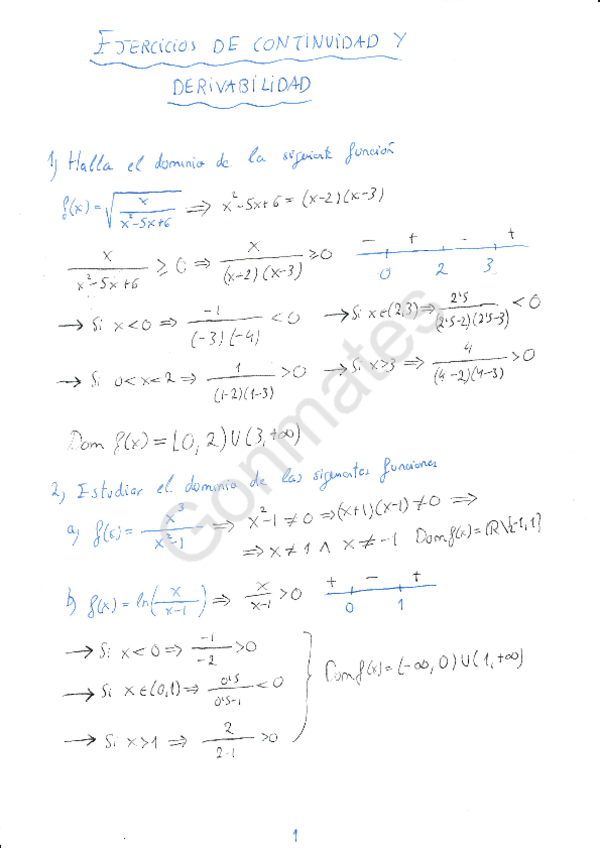 EJERCICIOS DE CONTINUIDAD Y
DERIVABILIDAD
1) Halla el dominio de la siguiente función
f(x) = √(x/(x²-5x+6)) ⇒ x²-5x+6 = (x-2)(x-3)
x/(x²-5x+6) ≥ 0 ⇒ x/((x-2)(x-3)) ≥ 0 - + - + 0 2 3
→ Si x<0 ⇒ -1/((-3)(-4)) < 0 → Si x∈(2,3) ⇒ 2'5/((2'5-2)(2'5-3)) < 0
→ Si 0<x<2 ⇒ 1/((1-2)(1-3)) > 0 → Si x>3 ⇒ 4/((4-2)(4-3)) > 0
Dom f(x) = [0, 2) ∪ (3, +∞)
2) Estudiar el dominio de las siguientes funciones
a) f(x) = x³/(x²-1) ⇒ x²-1 ≠ 0 ⇒ (x+1)(x-1) ≠ 0 ⇒
⇒ x ≠ 1 ∧ x ≠ -1 Dom f(x) = ℝ\{-1, 1}
b) f(x) = ln(x/(x-1)) ⇒ x/(x-1) > 0 + - + 0 1
→ Si x<0 ⇒ -1/-2 > 0
→ Si x∈(0,1) ⇒ 0'5/(0'5-1) < 0 Dom f(x) = (-∞, 0) ∪ (1, +∞)
→ Si x>1 ⇒ 2/(2-1) > 0
Gonmates
1